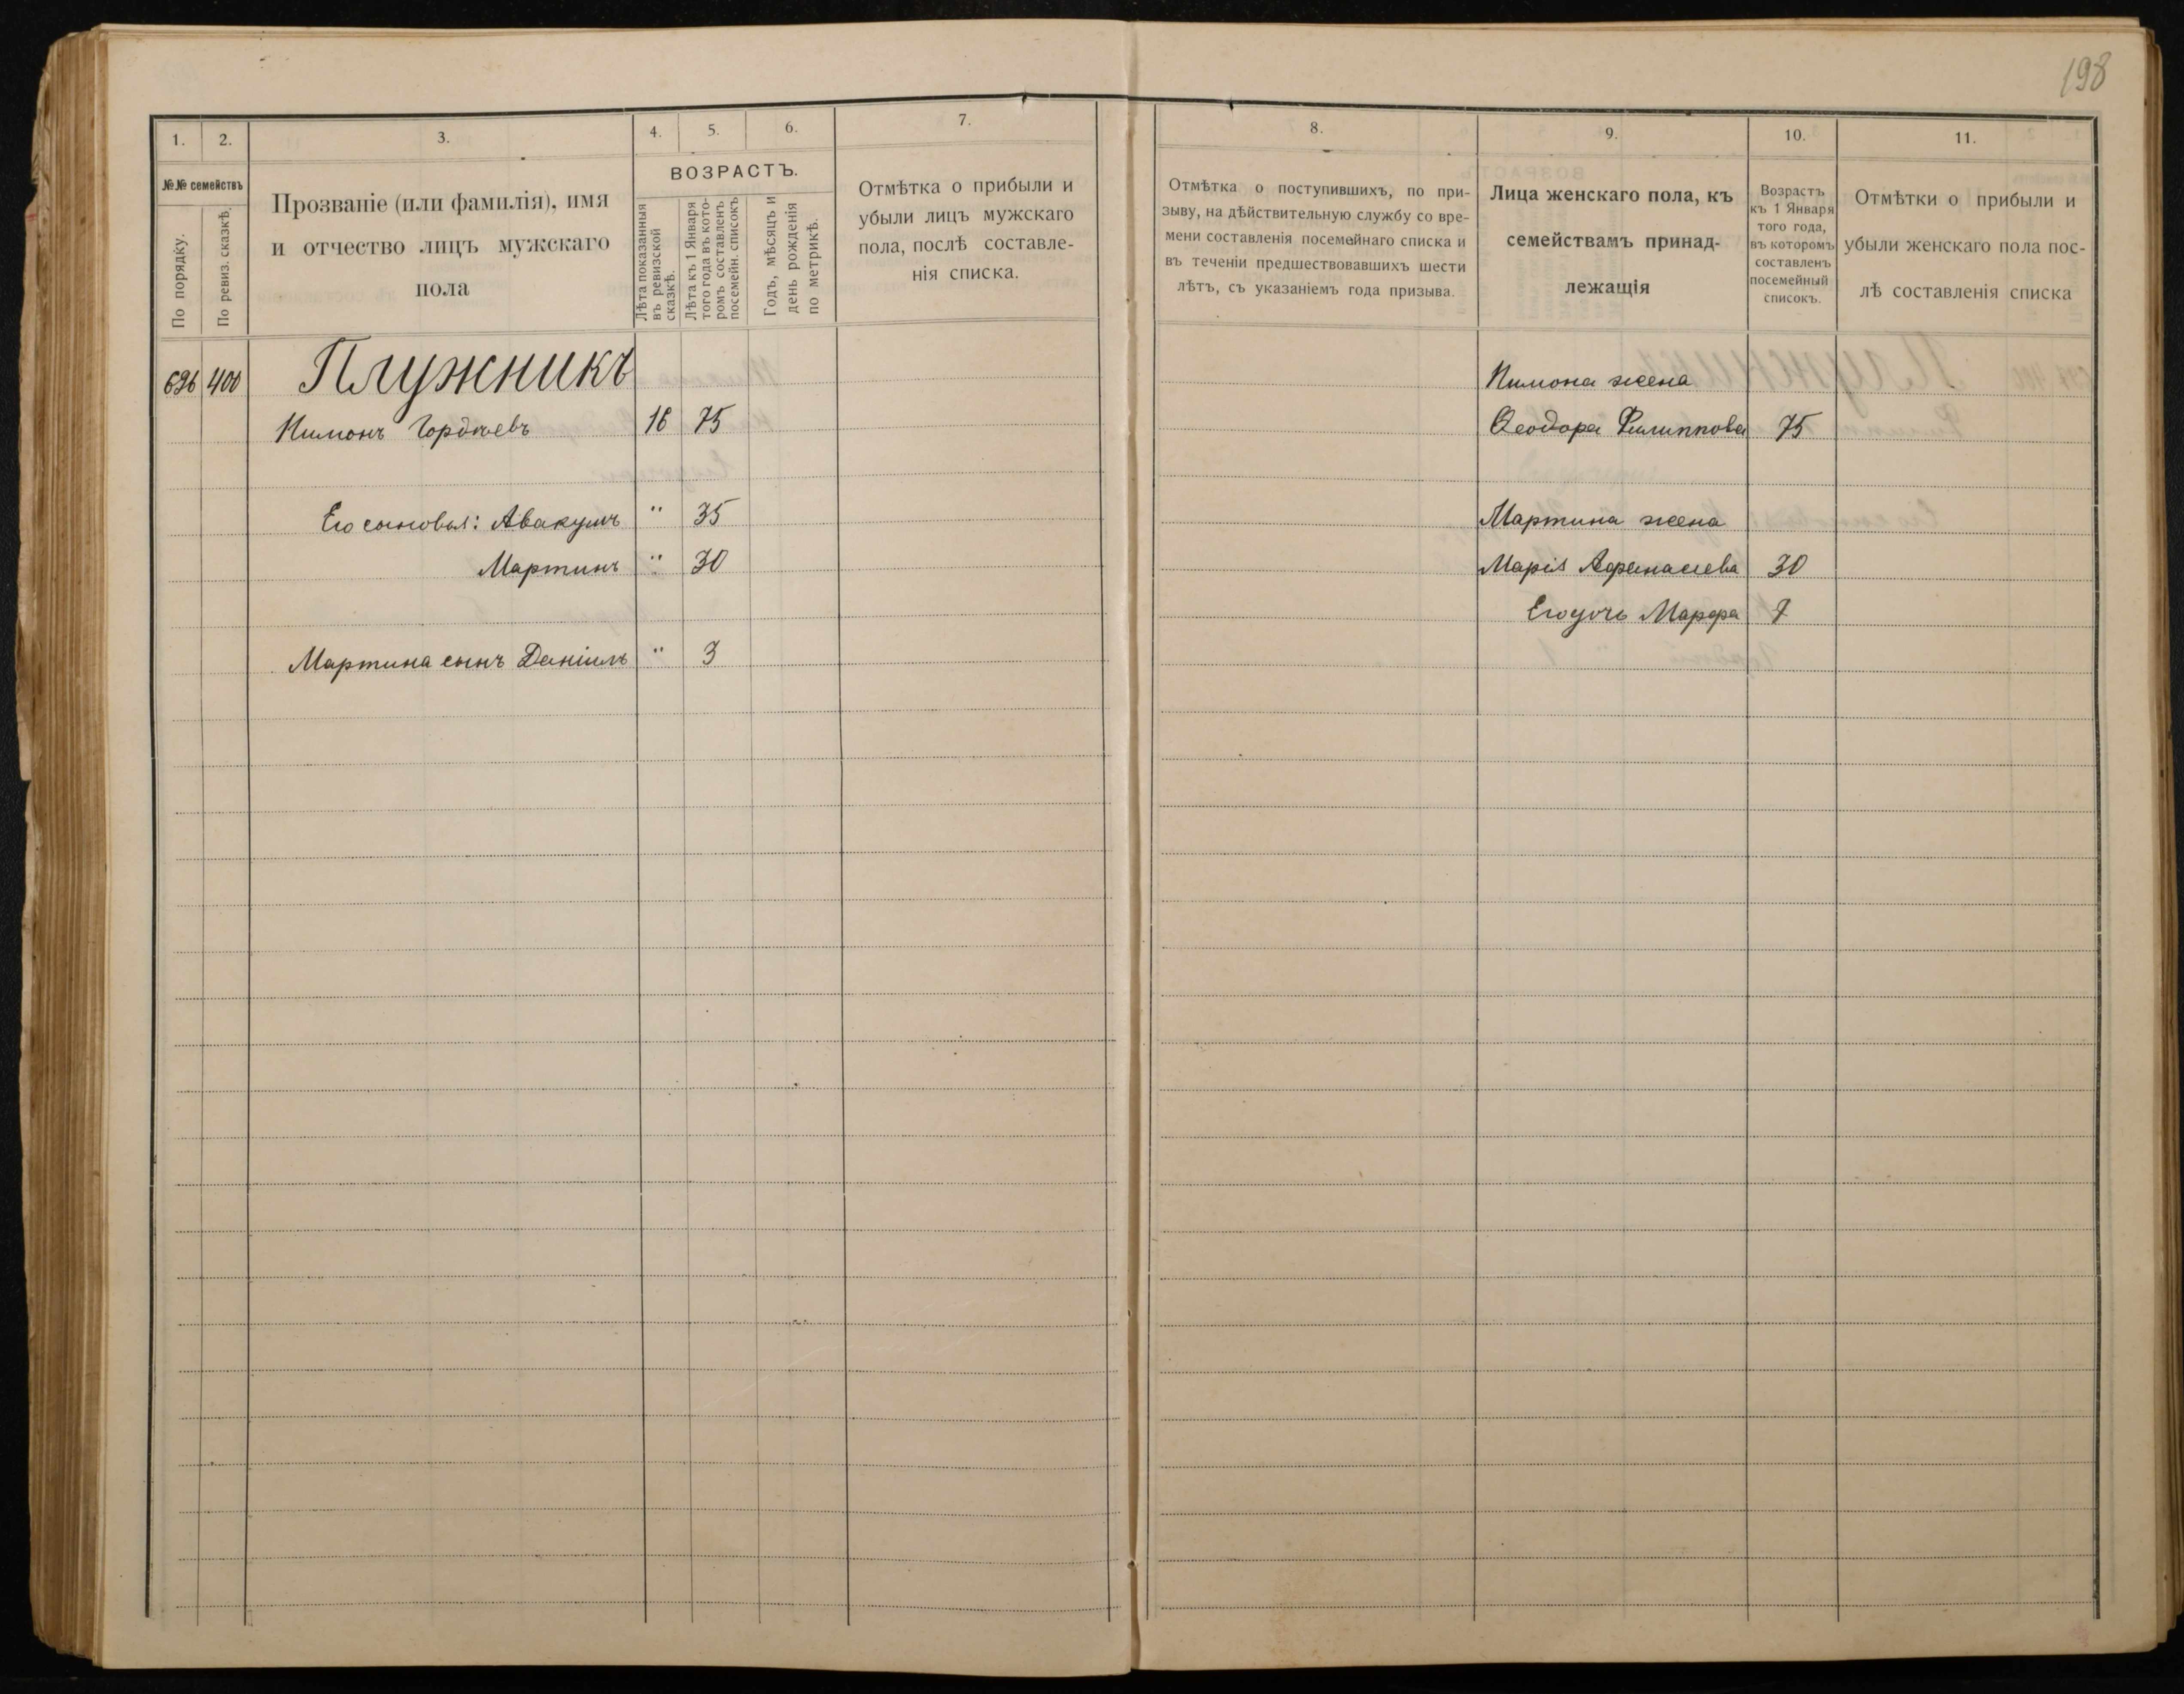 198
1. 2. 3. 4. 5. 6. 7.
№№ семействъ
По порядку.
По ревиз. сказкѣ.
Прозваніе (или фамилія), имя
и отчество лицъ мужскаго
пола
ВОЗРАСТЪ.
Лѣта показанныя
въ ревизской
сказкѣ.
Лѣта къ 1 Января
того года въ кото-
ромъ составленъ
посемейн. списокъ
Годъ, мѣсяцъ и
день рожденія
по метрикѣ.
Отмѣтка о прибыли и
убыли лицъ мужскаго
пола, послѣ составле-
нія списка.
696 400 Плужникъ
Пимонъ Гордѣевъ 16 75
Его сыновья: Авакумъ " 35
Мартинъ " 30
Мартина сынъ Даніилъ " 3
8. 9. 10. 11.
Отмѣтка о поступившихъ, по при-
зыву, на дѣйствительную службу со вре-
мени составленія посемейнаго списка и
въ теченіи предшествовавшихъ шести
лѣтъ, съ указаніемъ года призыва.
Лица женскаго пола, къ
семействамъ принад-
лежащія
Возрастъ
къ 1 Января
того года,
въ которомъ
составленъ
посемейный
списокъ.
Отмѣтки о прибыли и
убыли женскаго пола пос-
лѣ составленія списка
Пимона жена
Ѳеодора Филиппова 75
Мартина жена
Марія Афанасиева 30
Его дочь Марфа 7